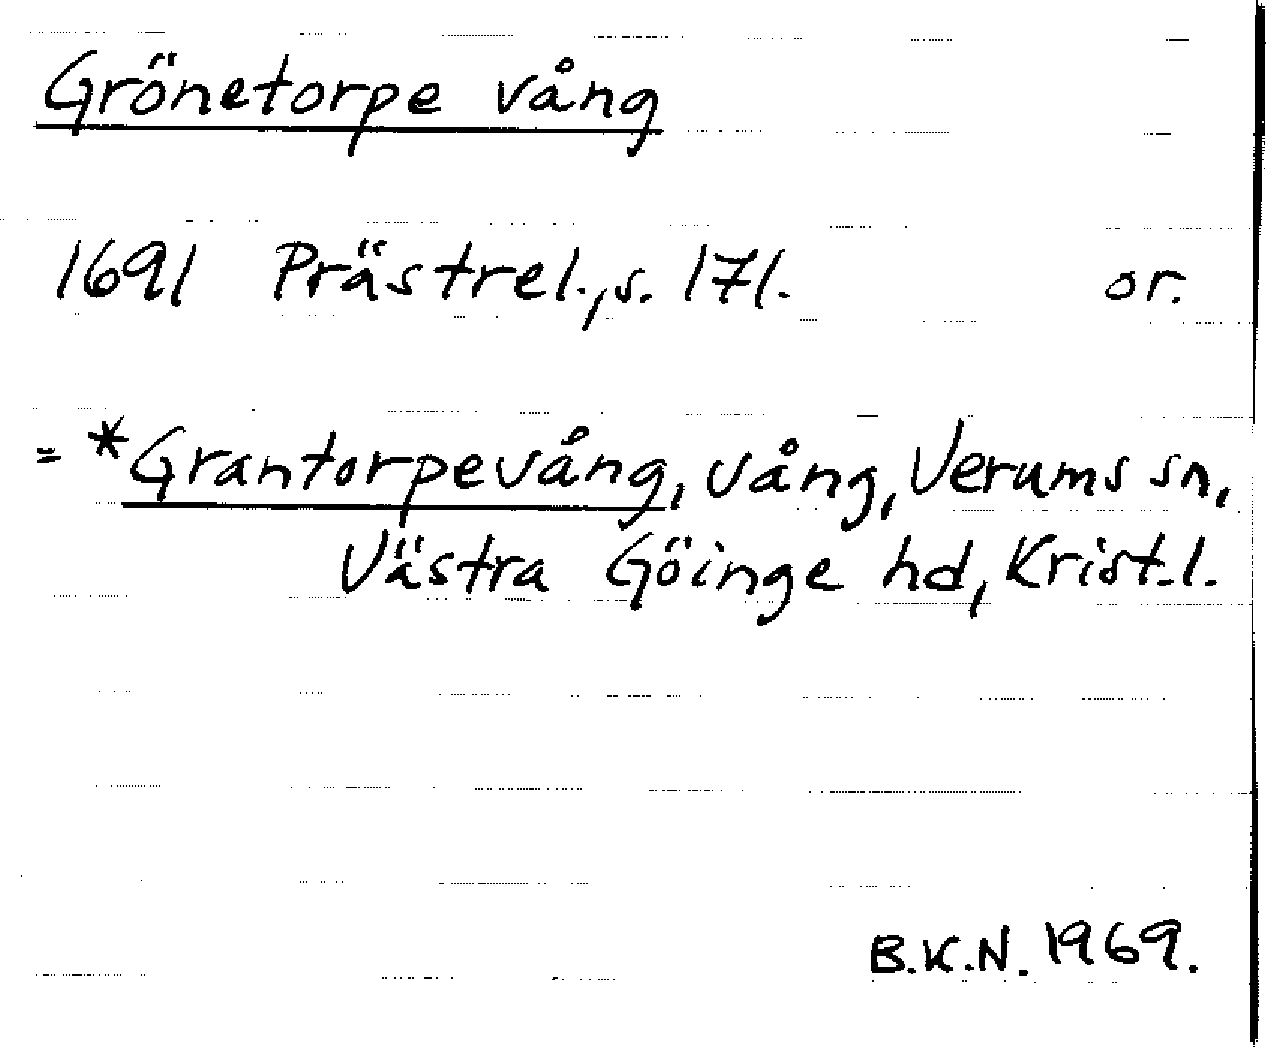 Grönetorpe vång
1691 Prästrel., s. 171. or.
= *Grantorpevång, vång, Verums sn,
Västra Göinge hd, Krist. l.
B.K.N. 1969.